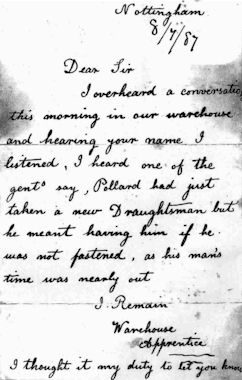 Nottingham
8/7/87
Dear Sir
I overheard a conversatio
this morning in our warehouse
and hearing your name I
listened, I heard one of the
gents say, Pollard had just
taken a new Draughtsman but
he meant having him if he
was not fastened, as his man's
time was nearly out
I Remain
Warehouse
Apprentice
I thought it my duty to let you know